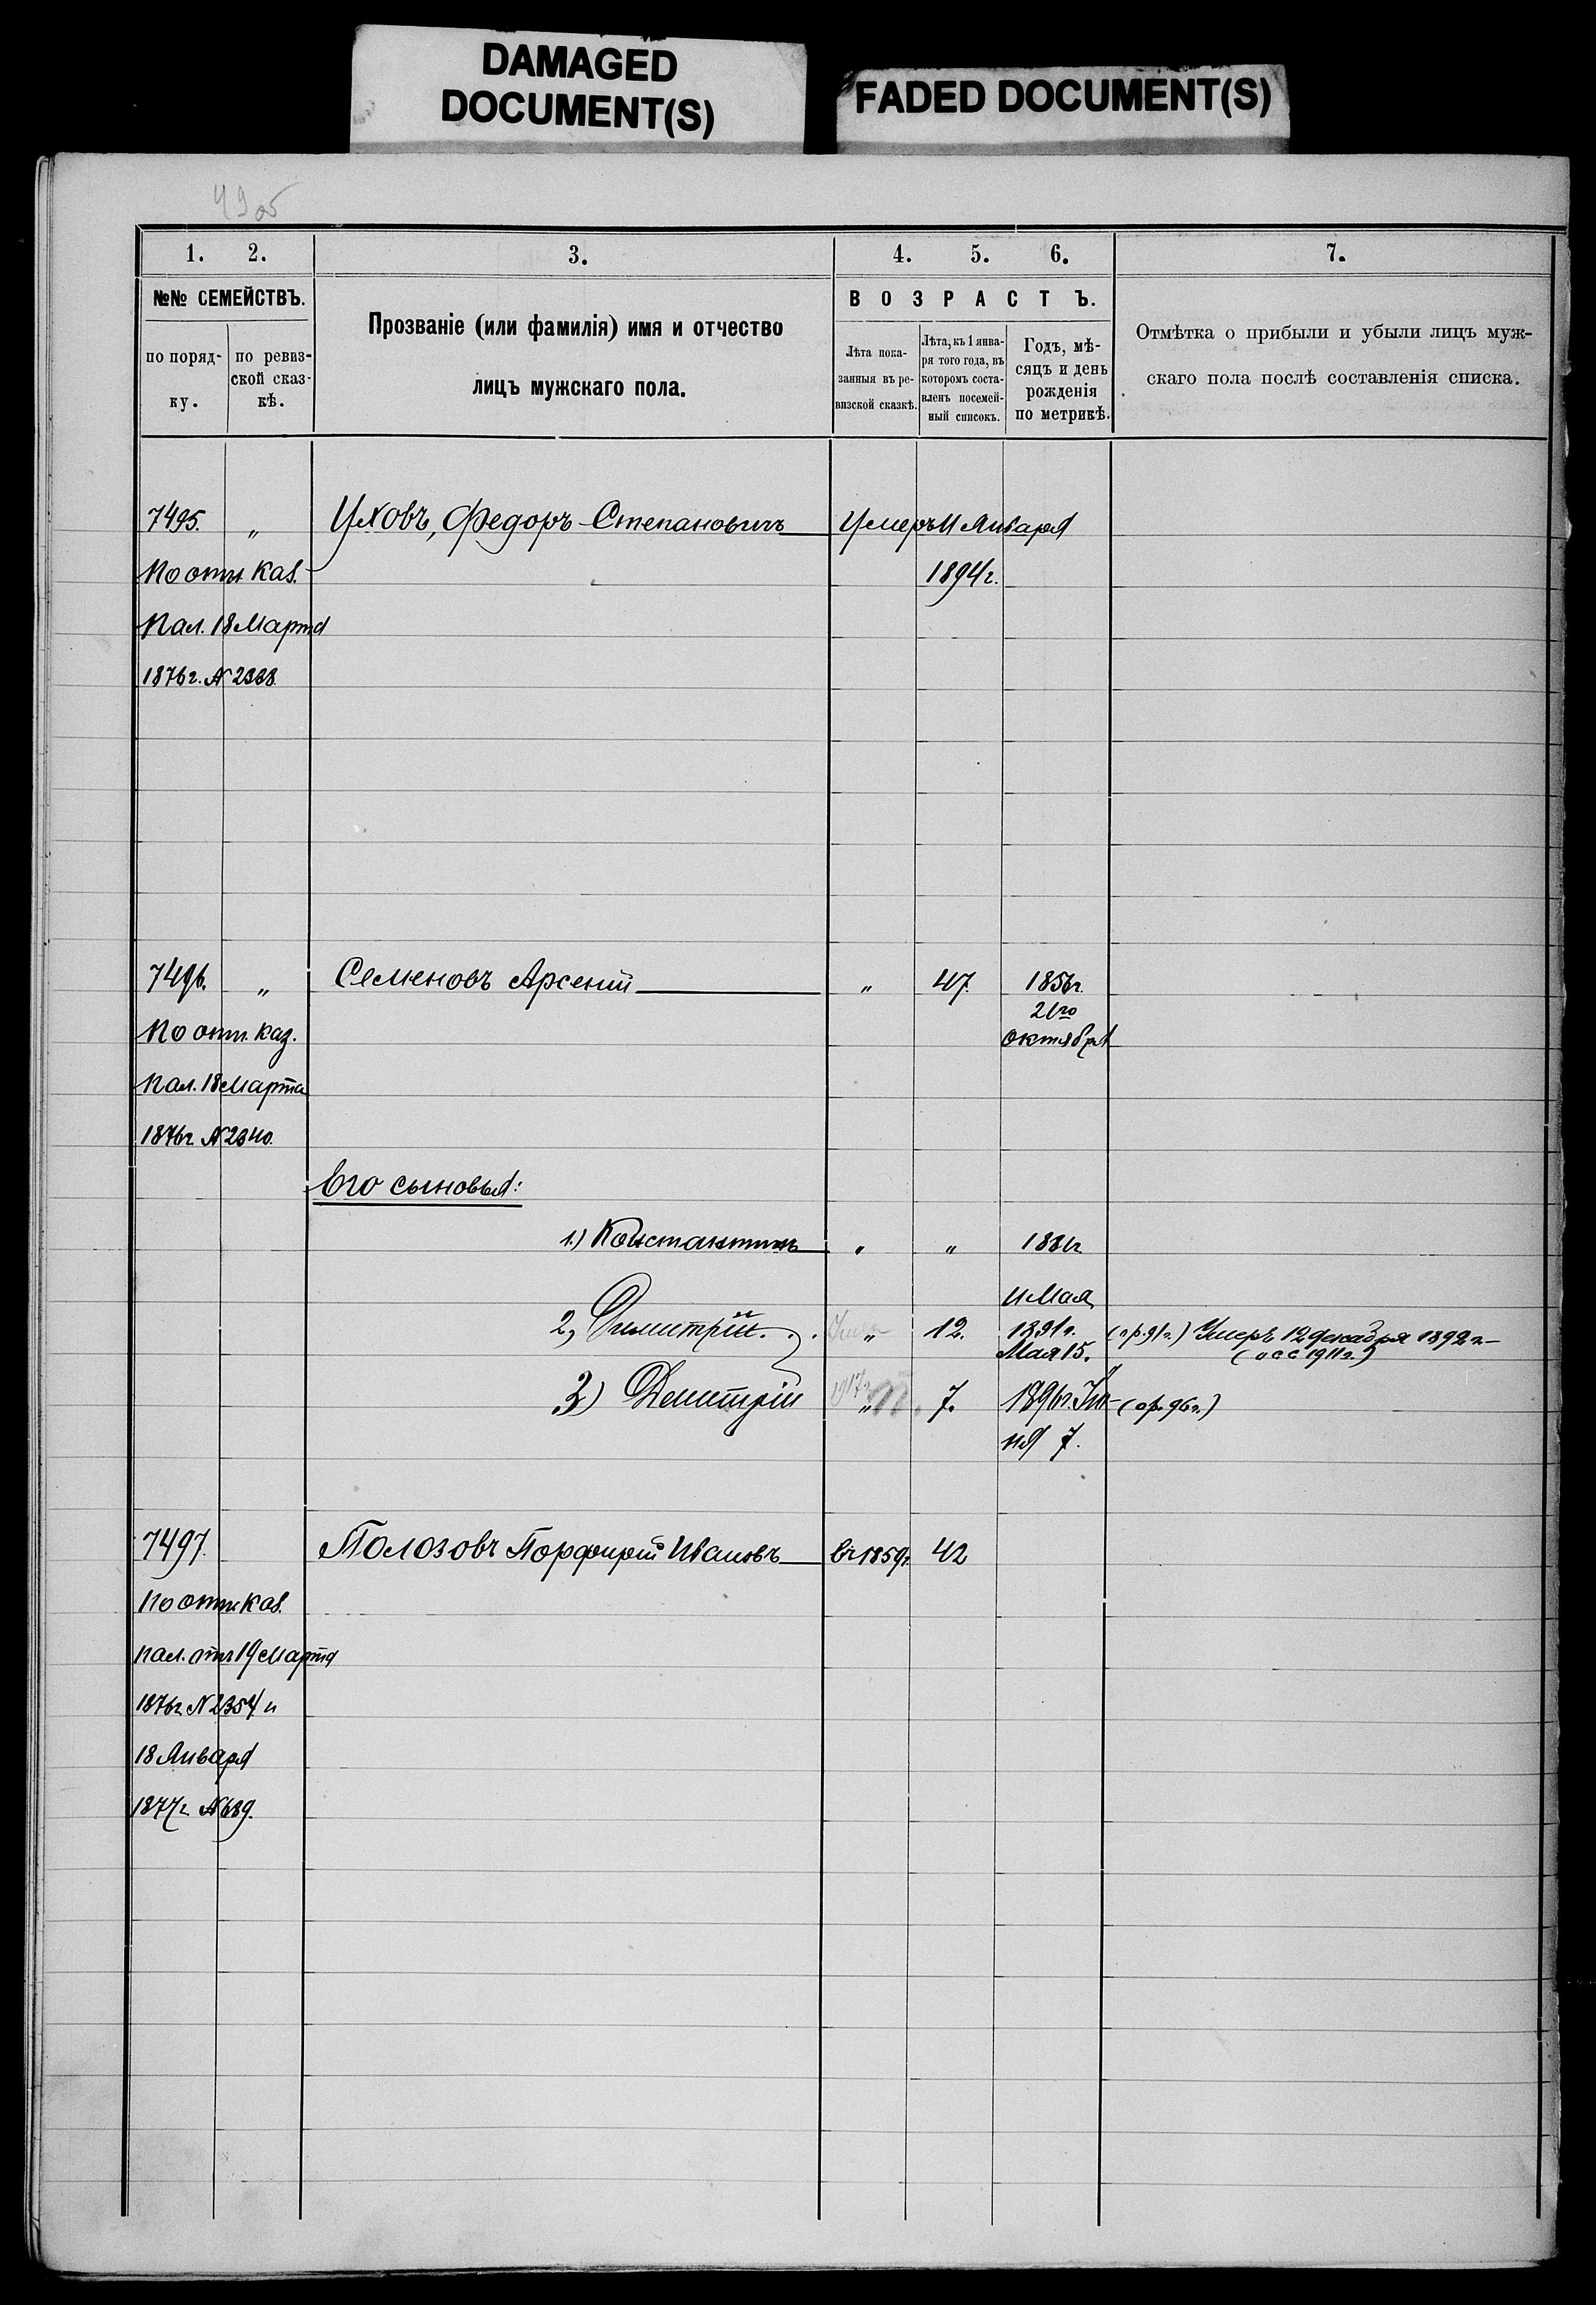 DAMAGED
DOCUMENT(S)
FADED DOCUMENT(S)
1. 2. 3. 4. 5. 6. 7.
№№ СЕМЕЙСТВЪ.
по поряд-
ку.
по ревиз-
ской сказ-
кѣ.
Прозваніе (или фамилія) имя и отчество
лицъ мужскаго пола.
ВОЗРАСТЪ.
Лѣта пока-
занныя въ ре-
визской сказкѣ.
Лѣта, къ 1 янва-
ря того года, въ
которомъ соста-
вленъ посемей-
ный списокъ.
Годъ, мѣ-
сяцъ и день
рожденія
по метрикѣ.
Отмѣтка о прибыли и убыли лицъ муж-
скаго пола послѣ составленія списка.
7495. „ Уховъ, Федоръ Степановичъ Умеръ 11 Января
По отн. Каз. 1894 г.
Пал. 18 Марта
1876 г. № 2338.
7496. „ Семеновъ Арсений „ 47. 1856 г.
21го
По отн. Каз. октября
Пал. 18 Марта
1876 г. № 2340.
Его сыновья:
1.) Константинъ „ „ 1881 г.
11 Мая
2, Димитрій . . „ 12. 1891 г. (пр. 91 г.) Умеръ 12 декабря 1892 г.
Мая 15. (осс 1911 г.)
3) Дмитрій 1917 г. „ 7. 1896 г. Ію- (ор. 96 г.)
ня 7.
7497. Полозовъ Порфирій Ивановъ въ 1859 г. 42
По отн. Каз.
пал. отъ 19 Марта
1876 г. № 2354 и
18 Января
1877 г. № 689.